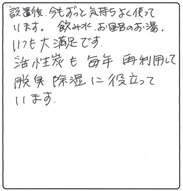 設置後、今もずっと気持ちよく使って
います。飲み水、お風呂のお湯。
いつも大満足です。
活性炭も毎年再利用して
脱臭除湿に役立って
います。